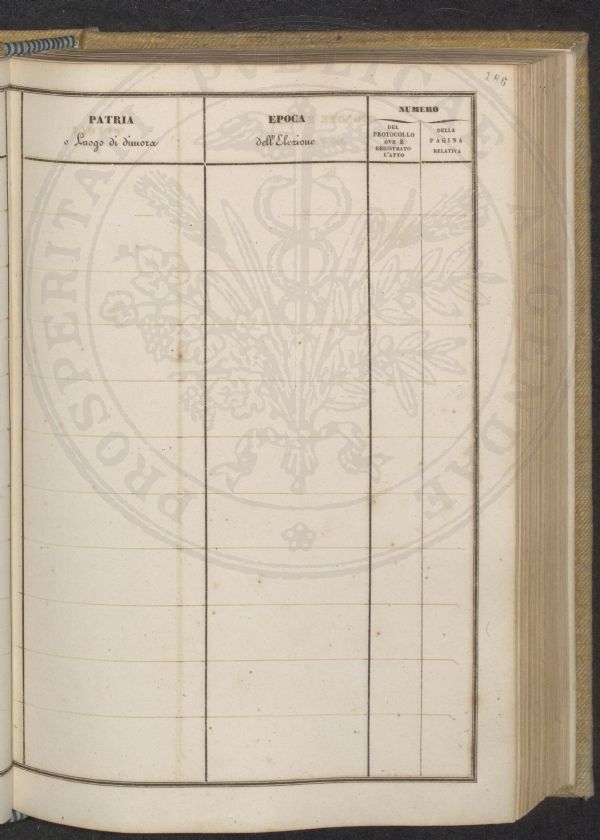 286
PATRIA
o Luogo di dimora
EPOCA
dell'Elezione
NUMERO
DEL
PROTOCOLLO
OVE È
REGISTRATO
L'ATTO
DELLA
PAGINA
RELATIVA
PROSPERITATI PVBLICAE AVGENDAE